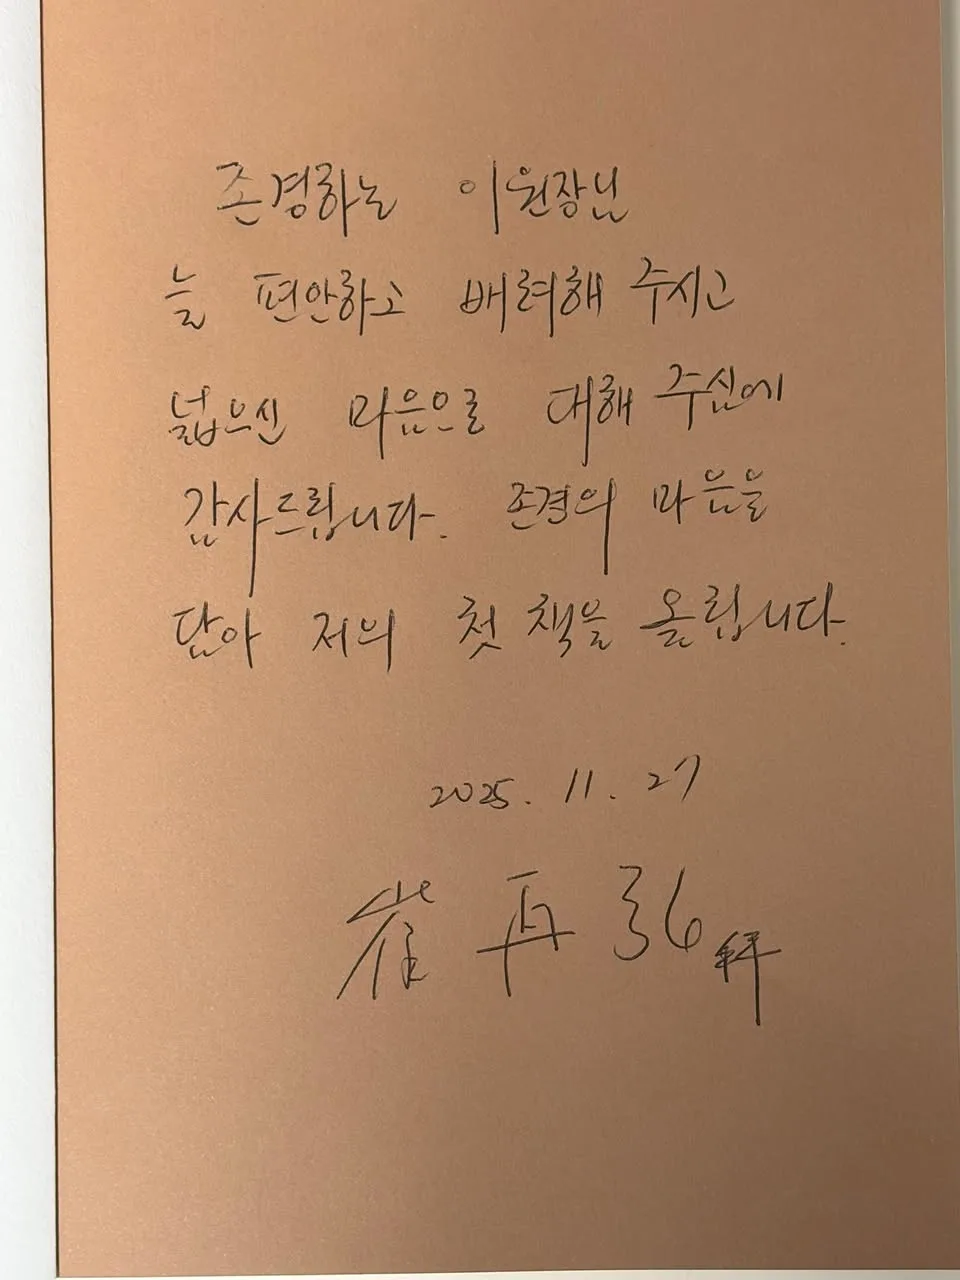 존경하는 이원장님
늘 편안하고 배려해 주시고
넓으신 마음으로 대해 주심에
감사드립니다. 존경의 마음을
담아 저의 첫 책을 올립니다.
2025. 11. 27
崔 再 弘 拜